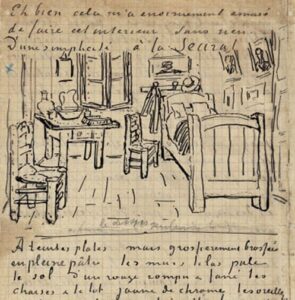 Eh bien cela m'a énormément amusé
de faire cet interieur sans rien.
D'une simplicité à la Seurat
A teintes plates mais grossierement brossée
en pleine pâte les murs lilas pale
le sol d'un rouge rompu & fané les
chaises & le lit jaune de chrome les oreillers